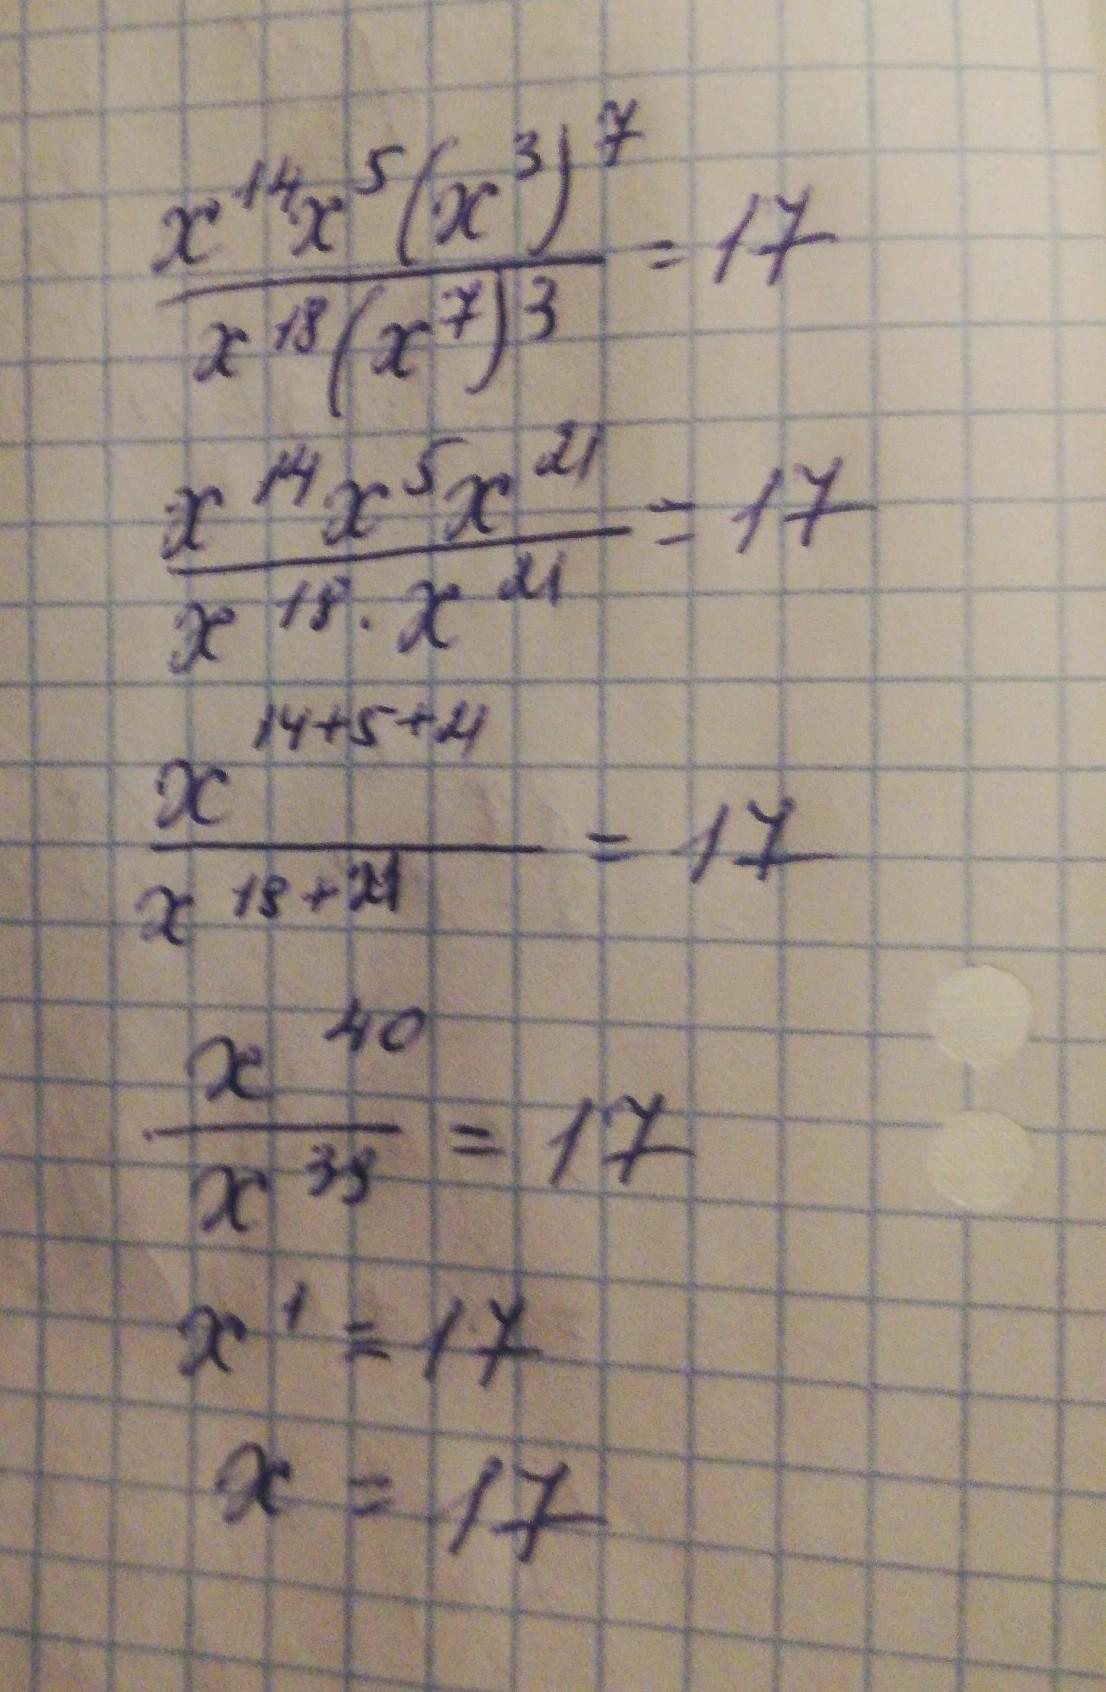 x¹⁴x⁵(x³)⁷ / x¹⁸(x⁷)³ = 17
x¹⁴x⁵x²¹ / x¹⁸·x²¹ = 17
x¹⁴⁺⁵⁺²¹ / x¹⁸⁺²¹ = 17
x⁴⁰ / x³⁹ = 17
x¹ = 17
x = 17